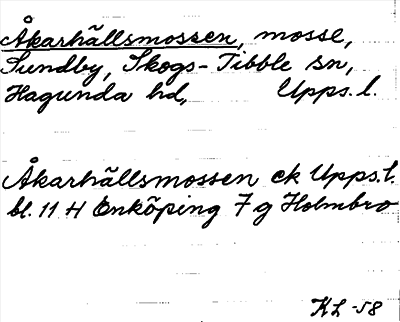 Åkarhällsmossen, mosse,
Sundby, Skogs-Tibble sn,
Hagunda hd, Upps. l.
Åkarhällsmossen ek Upps. l.
bl. 11 H Enköping 7 g Holmbro
KL -58